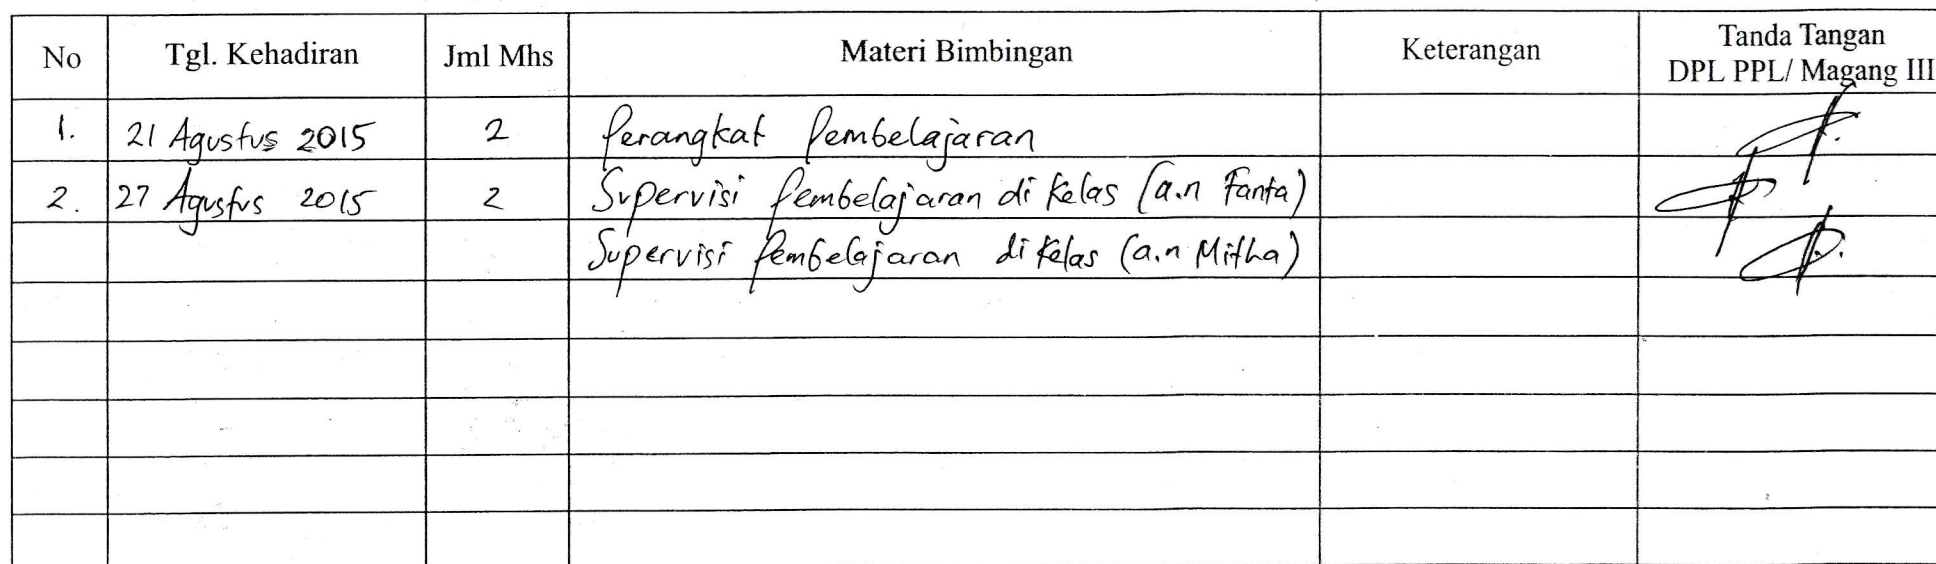 No Tgl. Kehadiran Jml Mhs Materi Bimbingan Keterangan Tanda Tangan
DPL PPL/ Magang III
1. 21 Agustus 2015 2 Perangkat Pembelajaran
2. 27 Agustus 2015 2 Supervisi Pembelajaran di Kelas (a.n Fanta)
Supervisi Pembelajaran di Kelas (a.n Mitha)